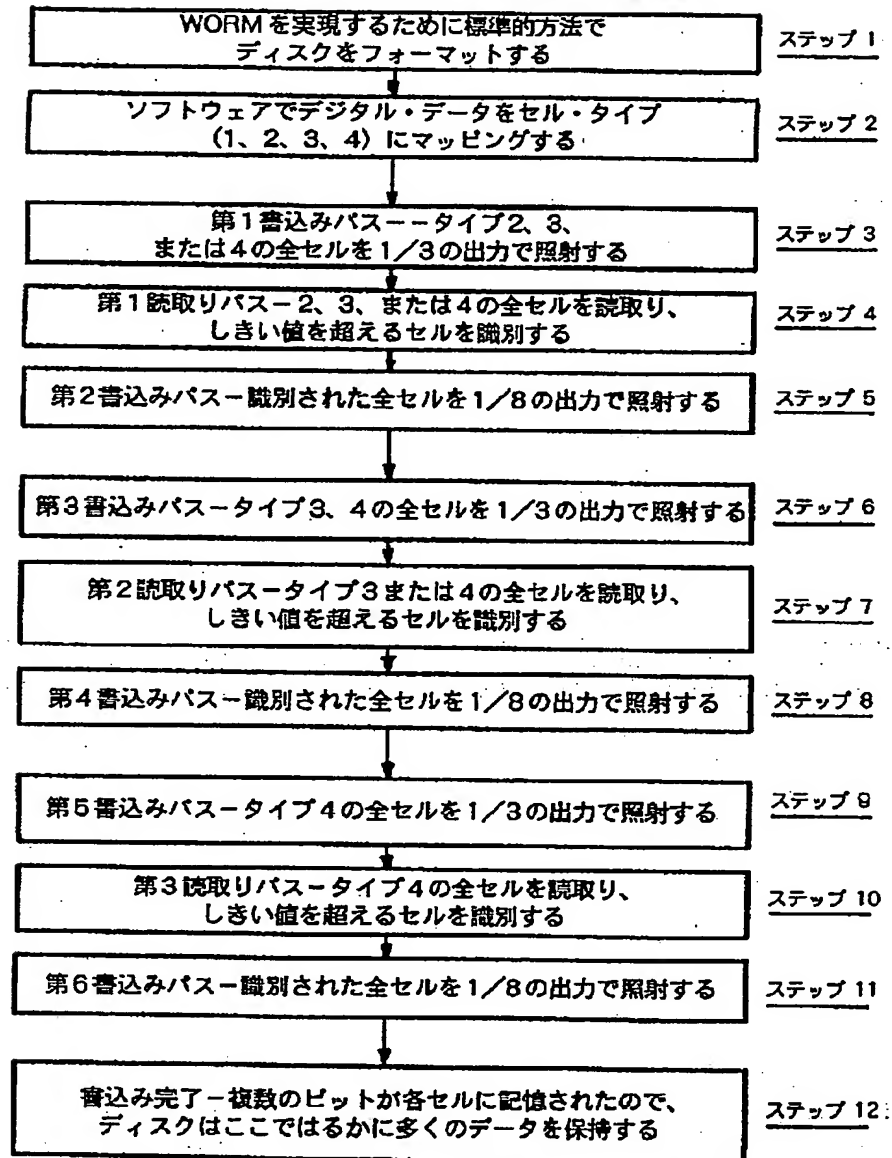 WORMを実現するために標準的方法で
ディスクをフォーマットする
ステップ 1
ソフトウェアでデジタル・データをセル・タイプ
(1、2、3、4)にマッピングする
ステップ 2
第1書込みパスーータイプ2、3、
または4の全セルを1/3の出力で照射する
ステップ 3
第1読取りパスー2、3、または4の全セルを読取り、
しきい値を超えるセルを識別する
ステップ 4
第2書込みパスー識別された全セルを1/8の出力で照射する
ステップ 5
第3書込みパスータイプ3、4の全セルを1/3の出力で照射する
ステップ 6
第2読取りパスータイプ3または4の全セルを読取り、
しきい値を超えるセルを識別する
ステップ 7
第4書込みパスー識別された全セルを1/8の出力で照射する
ステップ 8
第5書込みパスータイプ4の全セルを1/3の出力で照射する
ステップ 9
第3読取りパスータイプ4の全セルを読取り、
しきい値を超えるセルを識別する
ステップ 10
第6書込みパスー識別された全セルを1/8の出力で照射する
ステップ 11
書込み完了ー複数のビットが各セルに記憶されたので、
ディスクはここではるかに多くのデータを保持する
ステップ 12